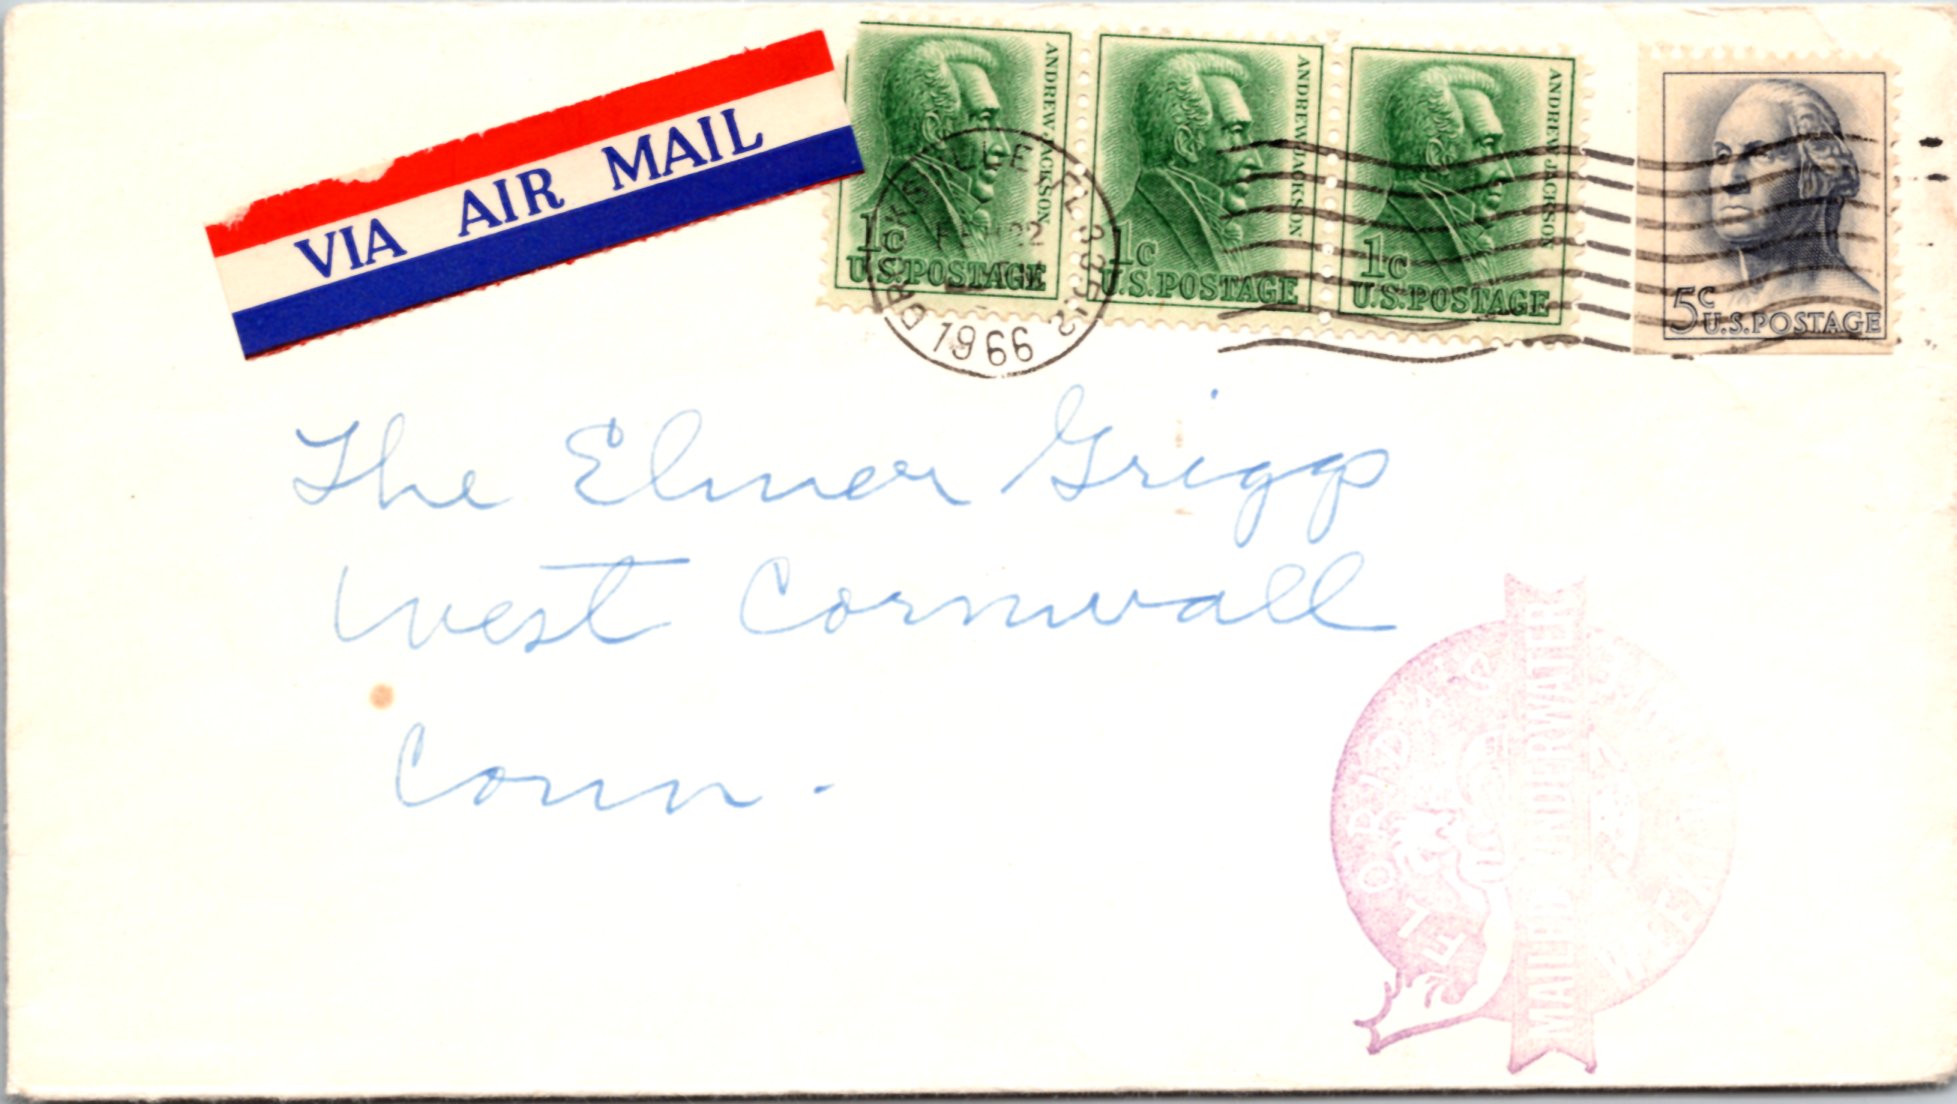 VIA AIR MAIL
ANDREW JACKSON
1c
U.S.POSTAGE
ANDREW JACKSON
1c
U.S.POSTAGE
ANDREW JACKSON
1c
U.S.POSTAGE
5c
U.S.POSTAGE
22
1966
The Elmer Griggs
West Cornwall
Conn.
MAILED UNDERWATER
FLORIDA'S